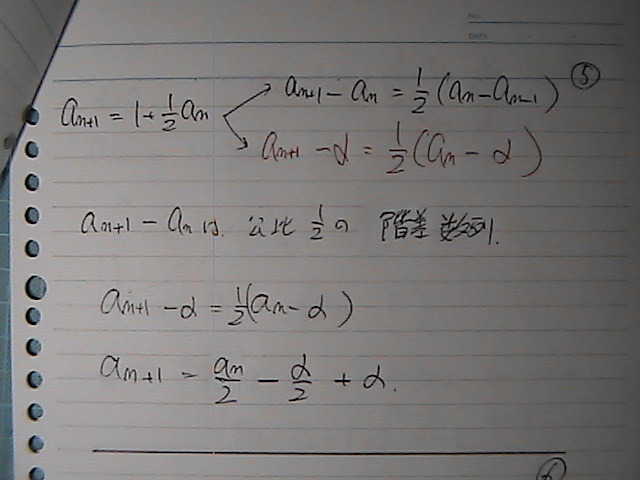 NO.
DATE
⑤
aₙ₊₁ − aₙ = 1/2 (aₙ − aₙ₋₁)
aₙ₊₁ = 1 + 1/2 aₙ
aₙ₊₁ − α = 1/2 (aₙ − α)
aₙ₊₁ − aₙ は. 公比 1/2 の 階差数列.
aₙ₊₁ − α = 1/2 (aₙ − α)
aₙ₊₁ = aₙ/2 − α/2 + α.